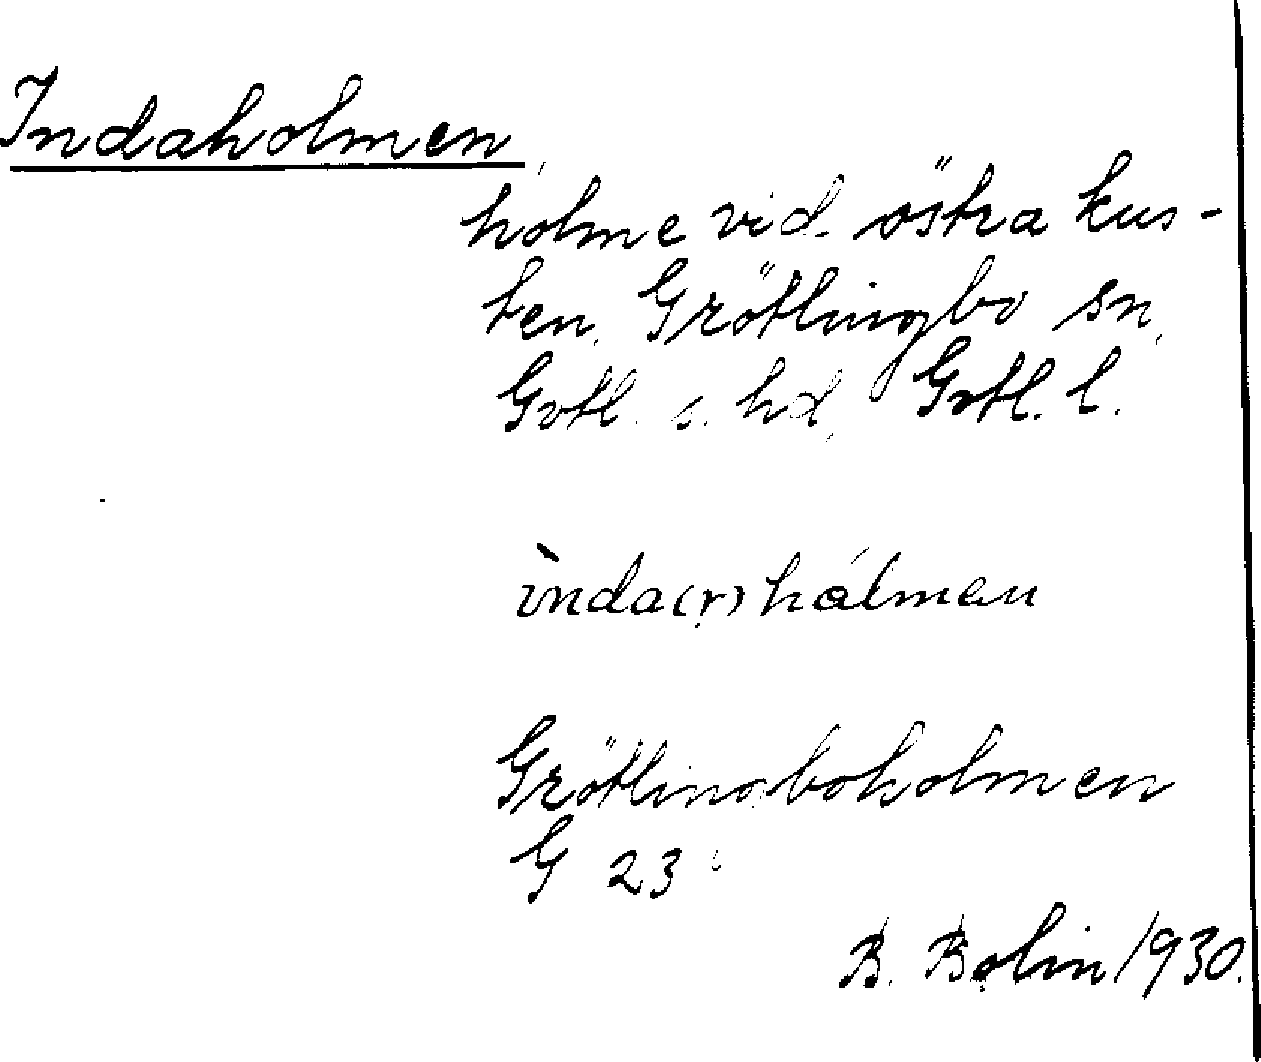 Indaholmen,
holme vid östra kus-
ten, Grötlingbo sn,
Gotl. s. hd, Gotl. l.
ìnda(r)hálmen
Grötlingboholmen
G 23
B. Bolin 1930.